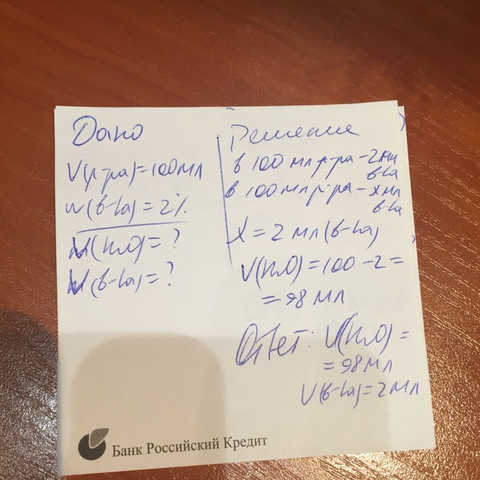 Дано
V(р-ра)=100мл
w(в-ва)=2%
V(H2O)=?
V(в-ва)=?
Решение
в 100 мл р-ра-2мл
в-ва
в 100мл р-ра-х мл
в-ва
X=2 мл(в-ва)
V(H2O)=100-2=
=98 мл
Ответ: V(H2O)=
=98мл
V(в-ва)=2мл
Банк Российский Кредит